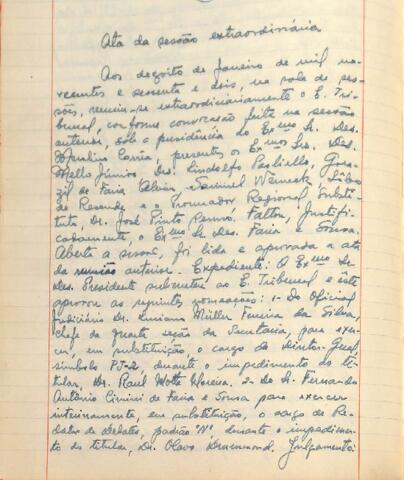 Ata da sessão extraordinária
Aos dezoito de janeiro de mil no-
vecentos e sessenta e dois, na sala de ses-
sões, reuniu-se extraordinariamente o E. Tri-
bunal, conforme convocação feita na sessão
anterior, sob a presidência do Exmo Sr. Des.
Corrêa, presentes os Exmos Srs. Des.
Mello Júnior, Drs. Lindolfo Paoliello,
de Faria Alvim, Samuel Werneck,
de Resende e o Procurador Regional Substi-
tuto, Dr. José Pinto Renó. Faltou, justifi-
cadamente, o Exmo Sr. Des. Faria e Sousa.
Aberta a sessão, foi lida e aprovada a ata
da reunião anterior. Expediente: O Exmo Sr.
Des. Presidente submeteu ao E. Tribunal e êste
aprovou as seguintes nomeações: 1- Do Oficial
Judiciário Dr. Luciano Müller Ferreira da Silva,
Chefe da Quarta seção da Secretaria, para exer-
cer, em substituição, o cargo de Diretor-Geral,
símbolo PJ-2, durante o impedimento do ti-
tular, Dr. Raul Moreira. 2- do Sr. Fernando
Antônio de Faria e Sousa para exercer
interinamente, em substituição, o cargo de Re-
dator de Debates, padrão "N", durante o impedimen-
to do titular, Dr. Olavo Drummond. Julgamento: